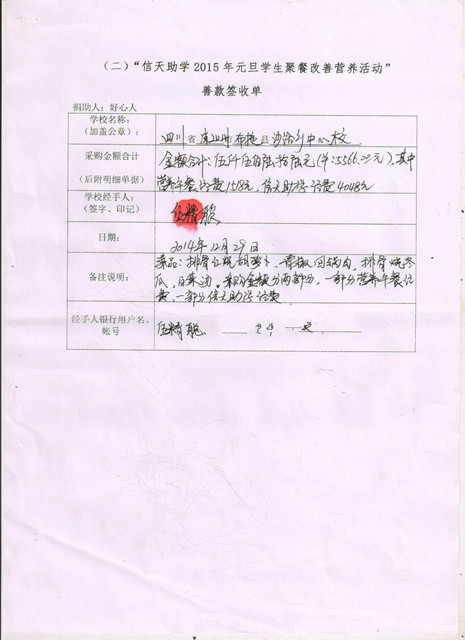 （二）“信天助学2015年元旦学生聚餐改善营养活动”
善款签收单
捐助人：好心人
学校名称：
（加盖公章）：
四川省凉山州布拖县 中心校
采购金额合计
（后附明细单据）
金额合计：伍仟伍佰陆拾陆元（¥：5566.00元），其中
营养午餐经费1518元，信天助学经费4048元
学校经手人：
（签字、印记）
伍精聪
日期：
2014年12月29日
备注说明：
菜品：排骨红烧胡萝卜、青椒回锅肉、排骨烧冬
瓜、白菜汤。采购金额分两部分，一部分营养午餐经
费，一部分信天助学经费
经手人银行用户名、
帐号
伍精聪